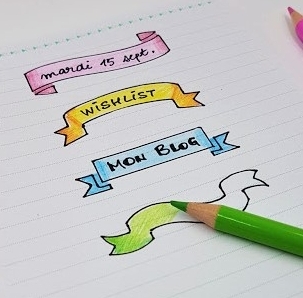 mardi 15 sept.
WiSHLiST
MON BLOG